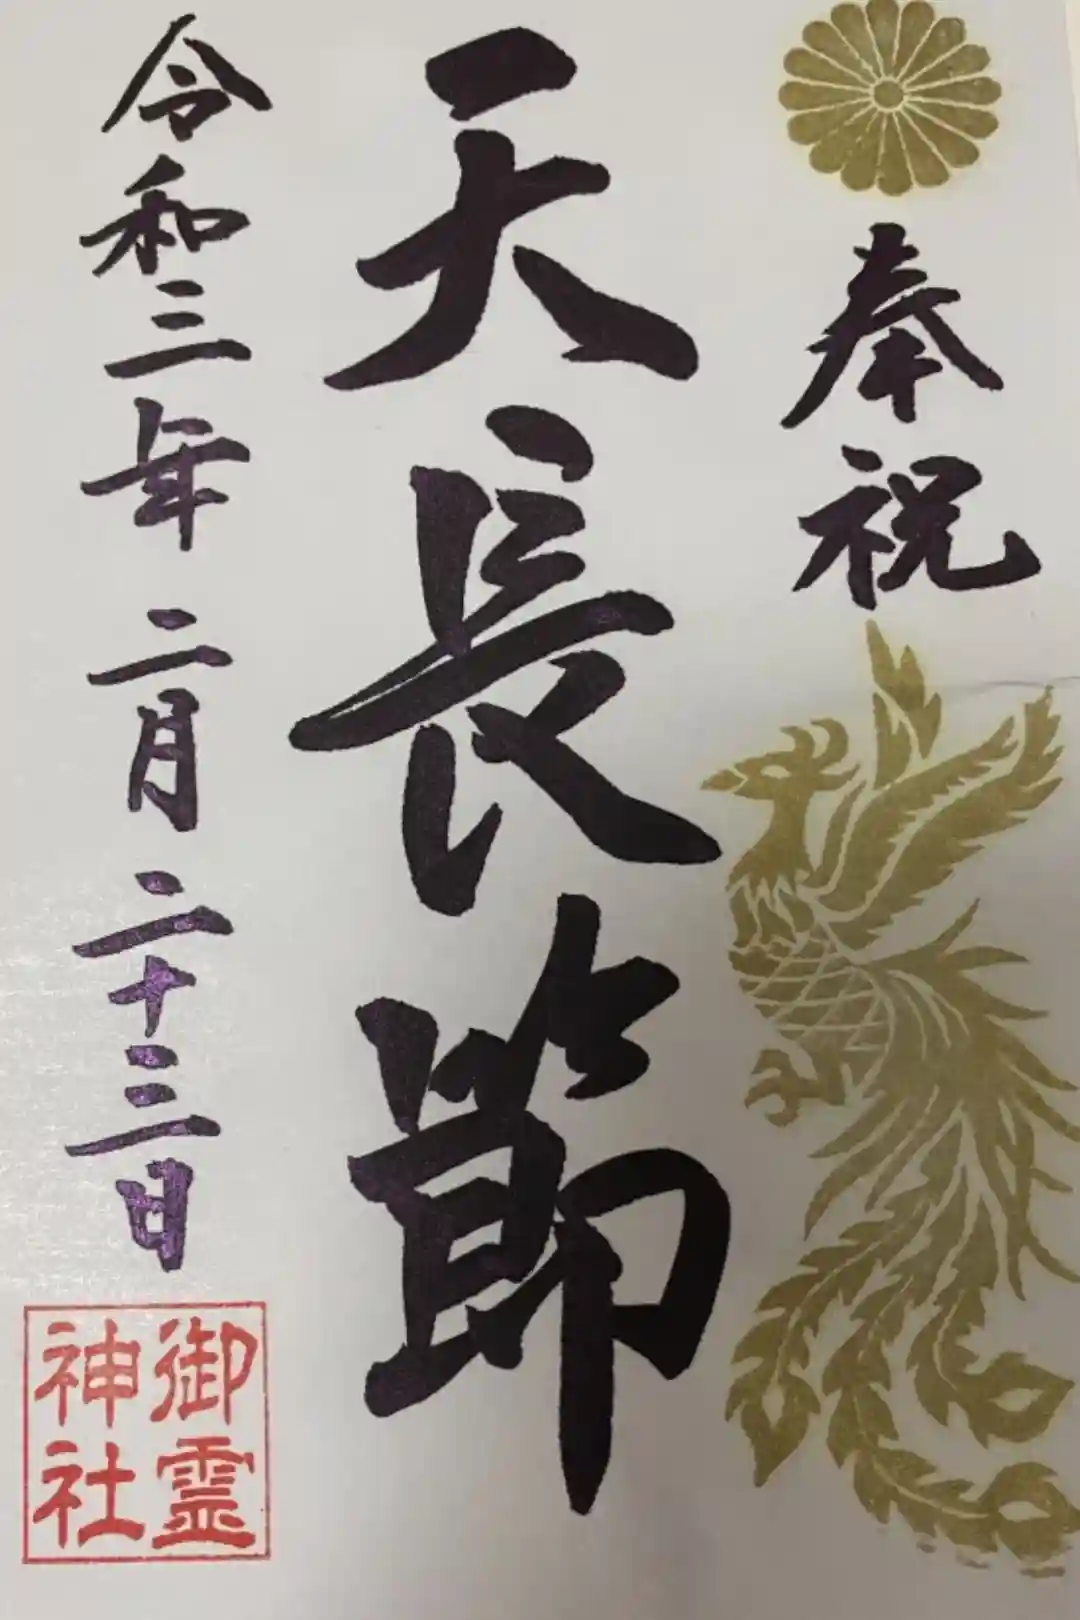 奉祝
天長節
令和三年二月二十三日
御霊
神社